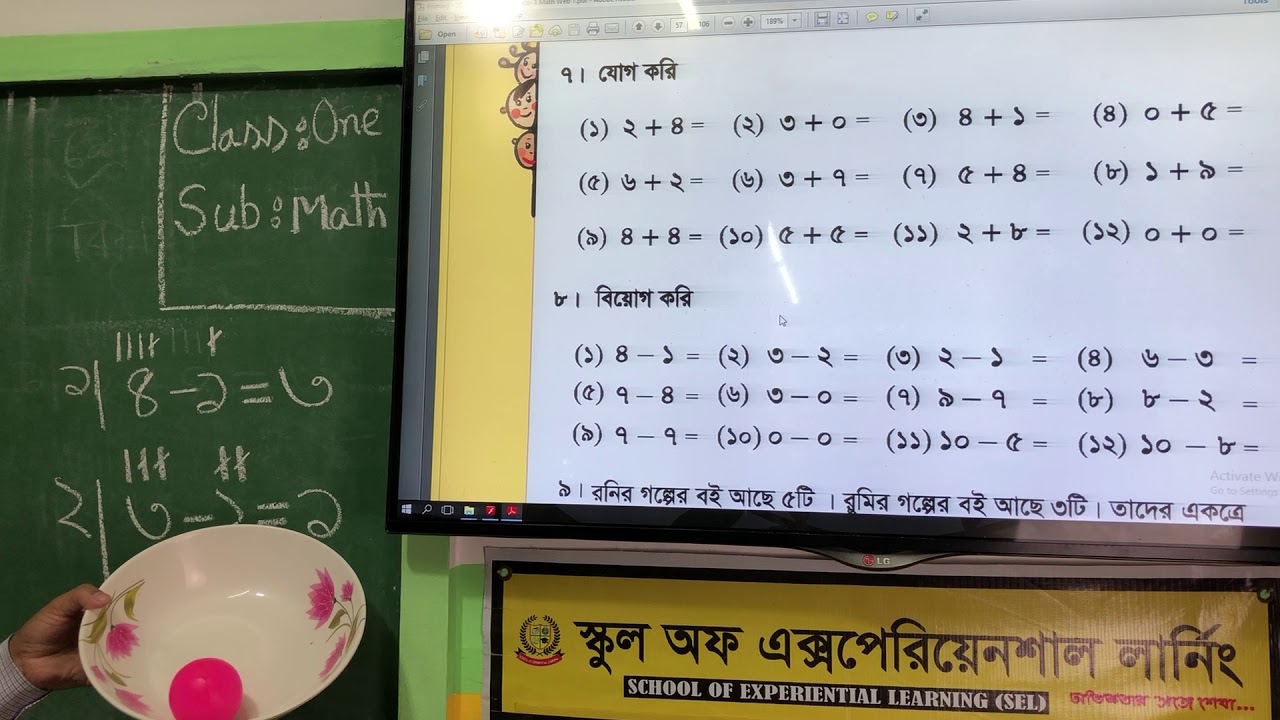 Class: One
Sub: Math
১| 8 - ১ = ৩
২| ৩ - ২ = ১
Open
57
106
189%
Tools
৭। যোগ করি
(১) ২ + ৪ = (২) ৩ + ০ = (৩) ৪ + ১ = (৪) ০ + ৫ =
(৫) ৬ + ২ = (৬) ৩ + ৭ = (৭) ৫ + ৪ = (৮) ১ + ৯ =
(৯) ৪ + ৪ = (১০) ৫ + ৫ = (১১) ২ + ৮ = (১২) ০ + ০ =
৮। বিয়োগ করি
(১) ৪ – ১ = (২) ৩ – ২ = (৩) ২ – ১ = (৪) ৬ – ৩ =
(৫) ৭ – ৪ = (৬) ৩ – ০ = (৭) ৯ – ৭ = (৮) ৮ – ২ =
(৯) ৭ – ৭ = (১০) ০ – ০ = (১১) ১০ – ৫ = (১২) ১০ – ৮ =
৯। রনির গল্পের বই আছে ৫টি । রুমির গল্পের বই আছে ৩টি । তাদের একত্রে
Activate
Go to Settings
LG
স্কুল অফ এক্সপেরিয়েনশাল লার্নিং
SCHOOL OF EXPERIENTIAL LEARNING (SEL)
অভিজ্ঞতার সাথে শেখা...